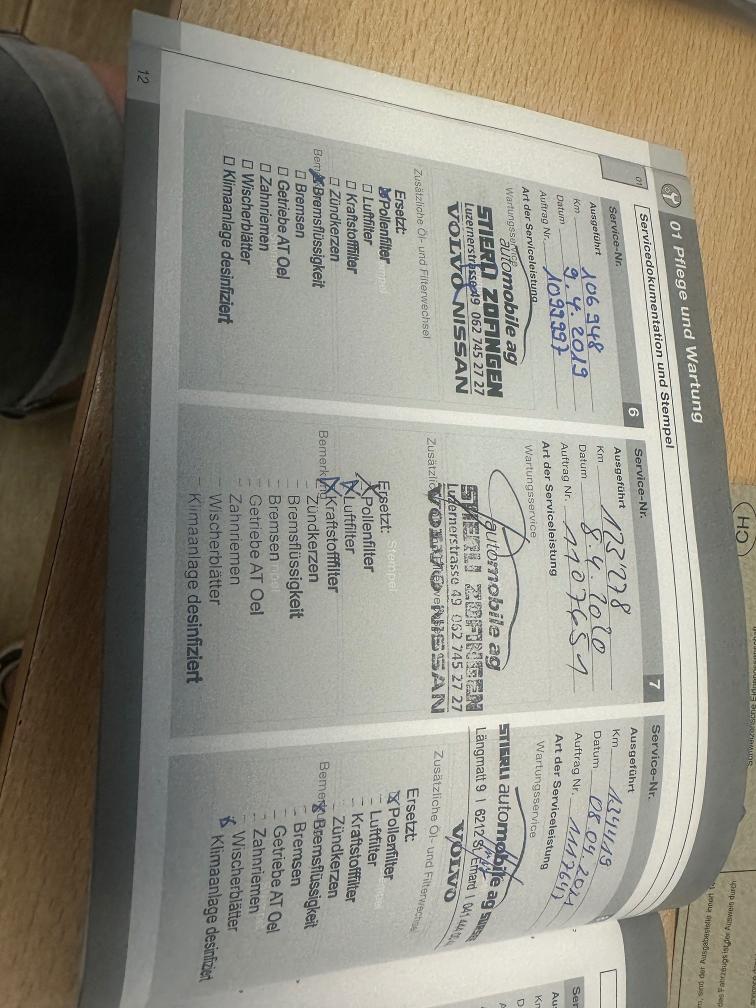 01 Pflege und Wartung
Servicedokumentation und Stempel
01
Service-Nr. 6
Ausgeführt
Km 106948
Datum 9.4.2019
Auftrag Nr. 1099997
Art der Serviceleistung
Wartungsservice
automobile ag
STIERLI ZOFINGEN
Luzernerstrasse 49 062 745 27 27
VOLVO NISSAN
Zusätzliche Öl- und Filterwechsel
Ersetzt:
Pollenfilter
Luftfilter
Kraftstofffilter
Zündkerzen
Bremsflüssigkeit
Bremsen
Getriebe AT Oel
Zahnriemen
Wischerblätter
Klimaanlage desinfiziert
Service-Nr. 7
Ausgeführt
Km 123'278
Datum 8.4.2020
Auftrag Nr. 1107651
Art der Serviceleistung
Wartungsservice
automobile ag
STIERLI ZOFINGEN
Luzernerstrasse 49 062 745 27 27
VOLVO NISSAN
Ersetzt:
Pollenfilter
Luftfilter
Kraftstofffilter
Zündkerzen
Bremsflüssigkeit
Bremsen
Getriebe AT Oel
Zahnriemen
Wischerblätter
Klimaanlage desinfiziert
Service-Nr.
Ausgeführt
Km 134419
Datum 08.04.2021
Auftrag Nr.
Art der Serviceleistung
Wartungsservice
STIERLI automobile ag
Längmatt 9 |
VOLVO
Zusätzliche Öl- und Filterwechsel
Ersetzt:
Pollenfilter
Luftfilter
Kraftstofffilter
Zündkerzen
Bremsflüssigkeit
Bremsen
Getriebe AT Oel
Zahnriemen
Wischerblätter
Klimaanlage desinfiziert
12